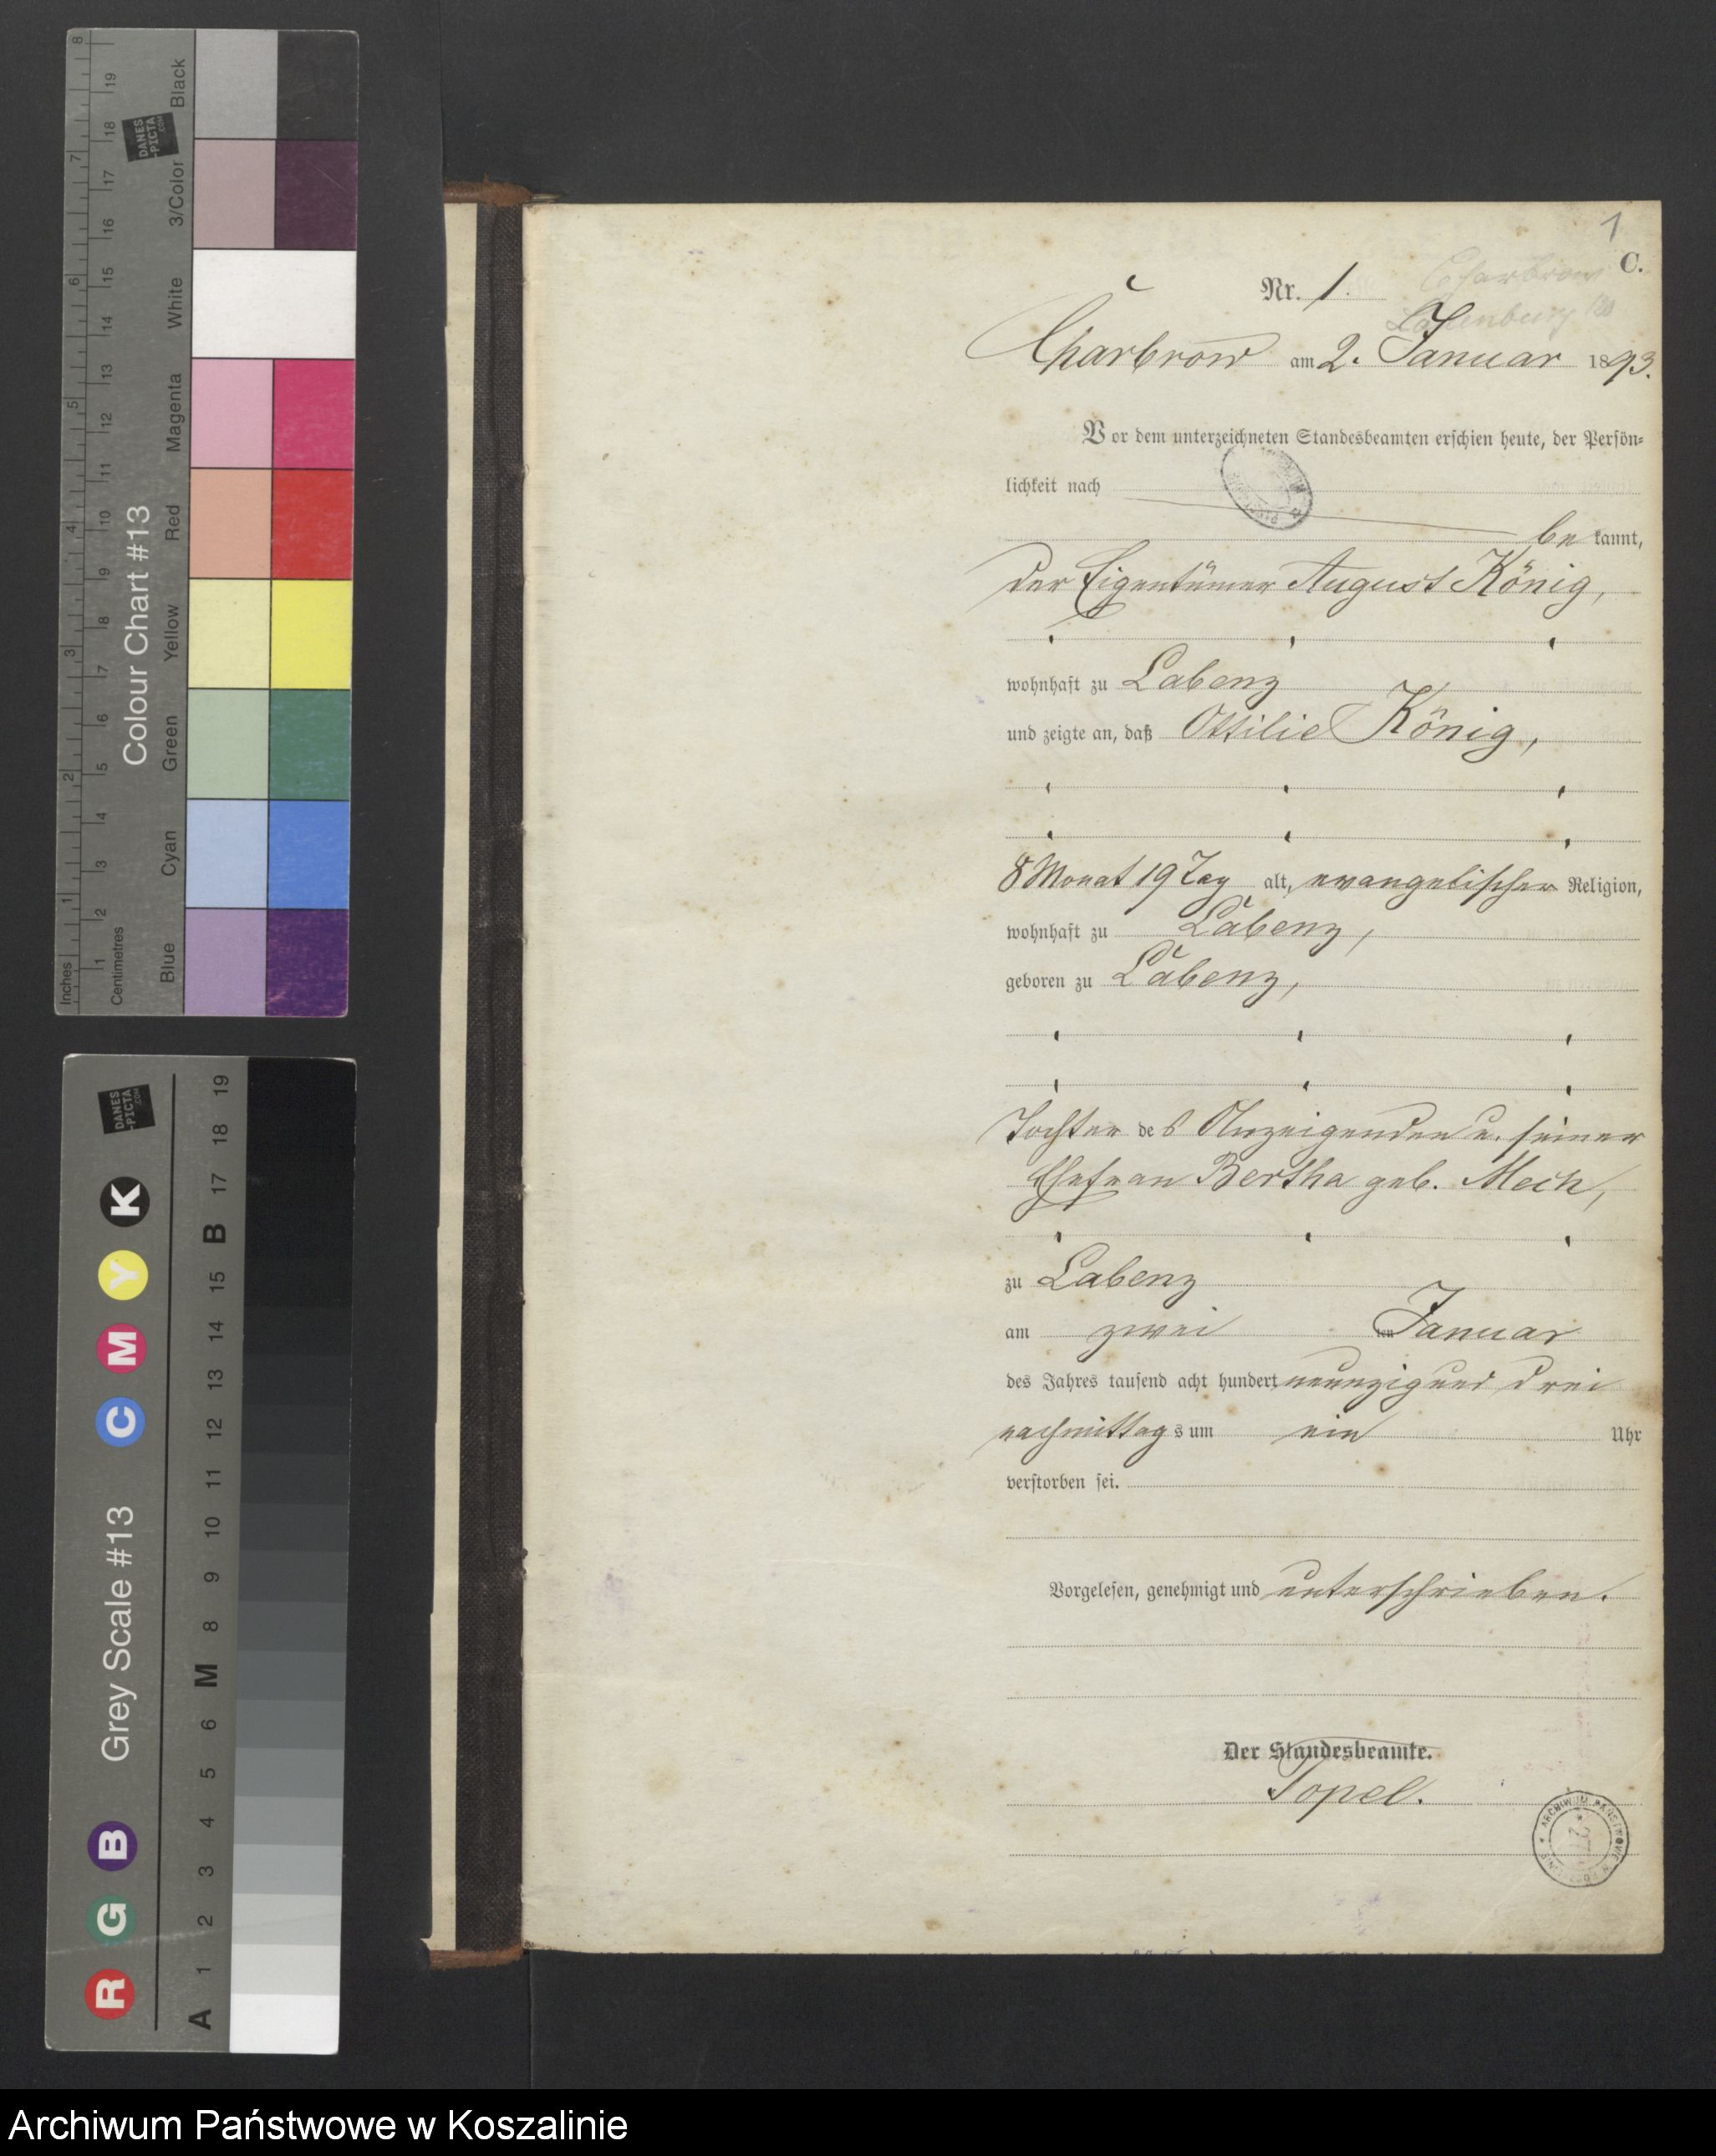 1
C.
Nr. 1.
Charbrow
Charbrow am 2. Januar 1893.
Vor dem unterzeichneten Standesbeamten erschien heute, der Persön-
lichkeit nach
be kannt,
der Eigentümer August König,
wohnhaft zu Labenz
und zeigte an, daß Ottilie König,
8 Monat 19 Tag alt, evangelischer Religion,
wohnhaft zu Labenz,
geboren zu Labenz,
Tochter des Anzeigenden u. seiner
Ehefrau Bertha geb. Mech,
zu Labenz
am zwei ten Januar
des Jahres tausend acht hundert neunzig und drei
nachmittags um ein Uhr
verstorben sei.
Vorgelesen, genehmigt und unterschrieben.
Der Standesbeamte.
Topel.
ARCHIWUM PAŃSTWOWE
Colour Chart #13
Blue Cyan Green Yellow Red Magenta White 3/Color Black
Inches 1 2 3 4 5 6 7 8
Centimetres 1 2 3 4 5 6 7 8 9 10 11 12 13 14 15 16 17 18 19
DANES
-PICTA
.COM
Grey Scale #13
R G B C M Y K
A 1 2 3 4 5 6 M 8 9 10 11 12 13 14 15 B 17 18 19
DANES
-PICTA
.COM
Archiwum Państwowe w Koszalinie